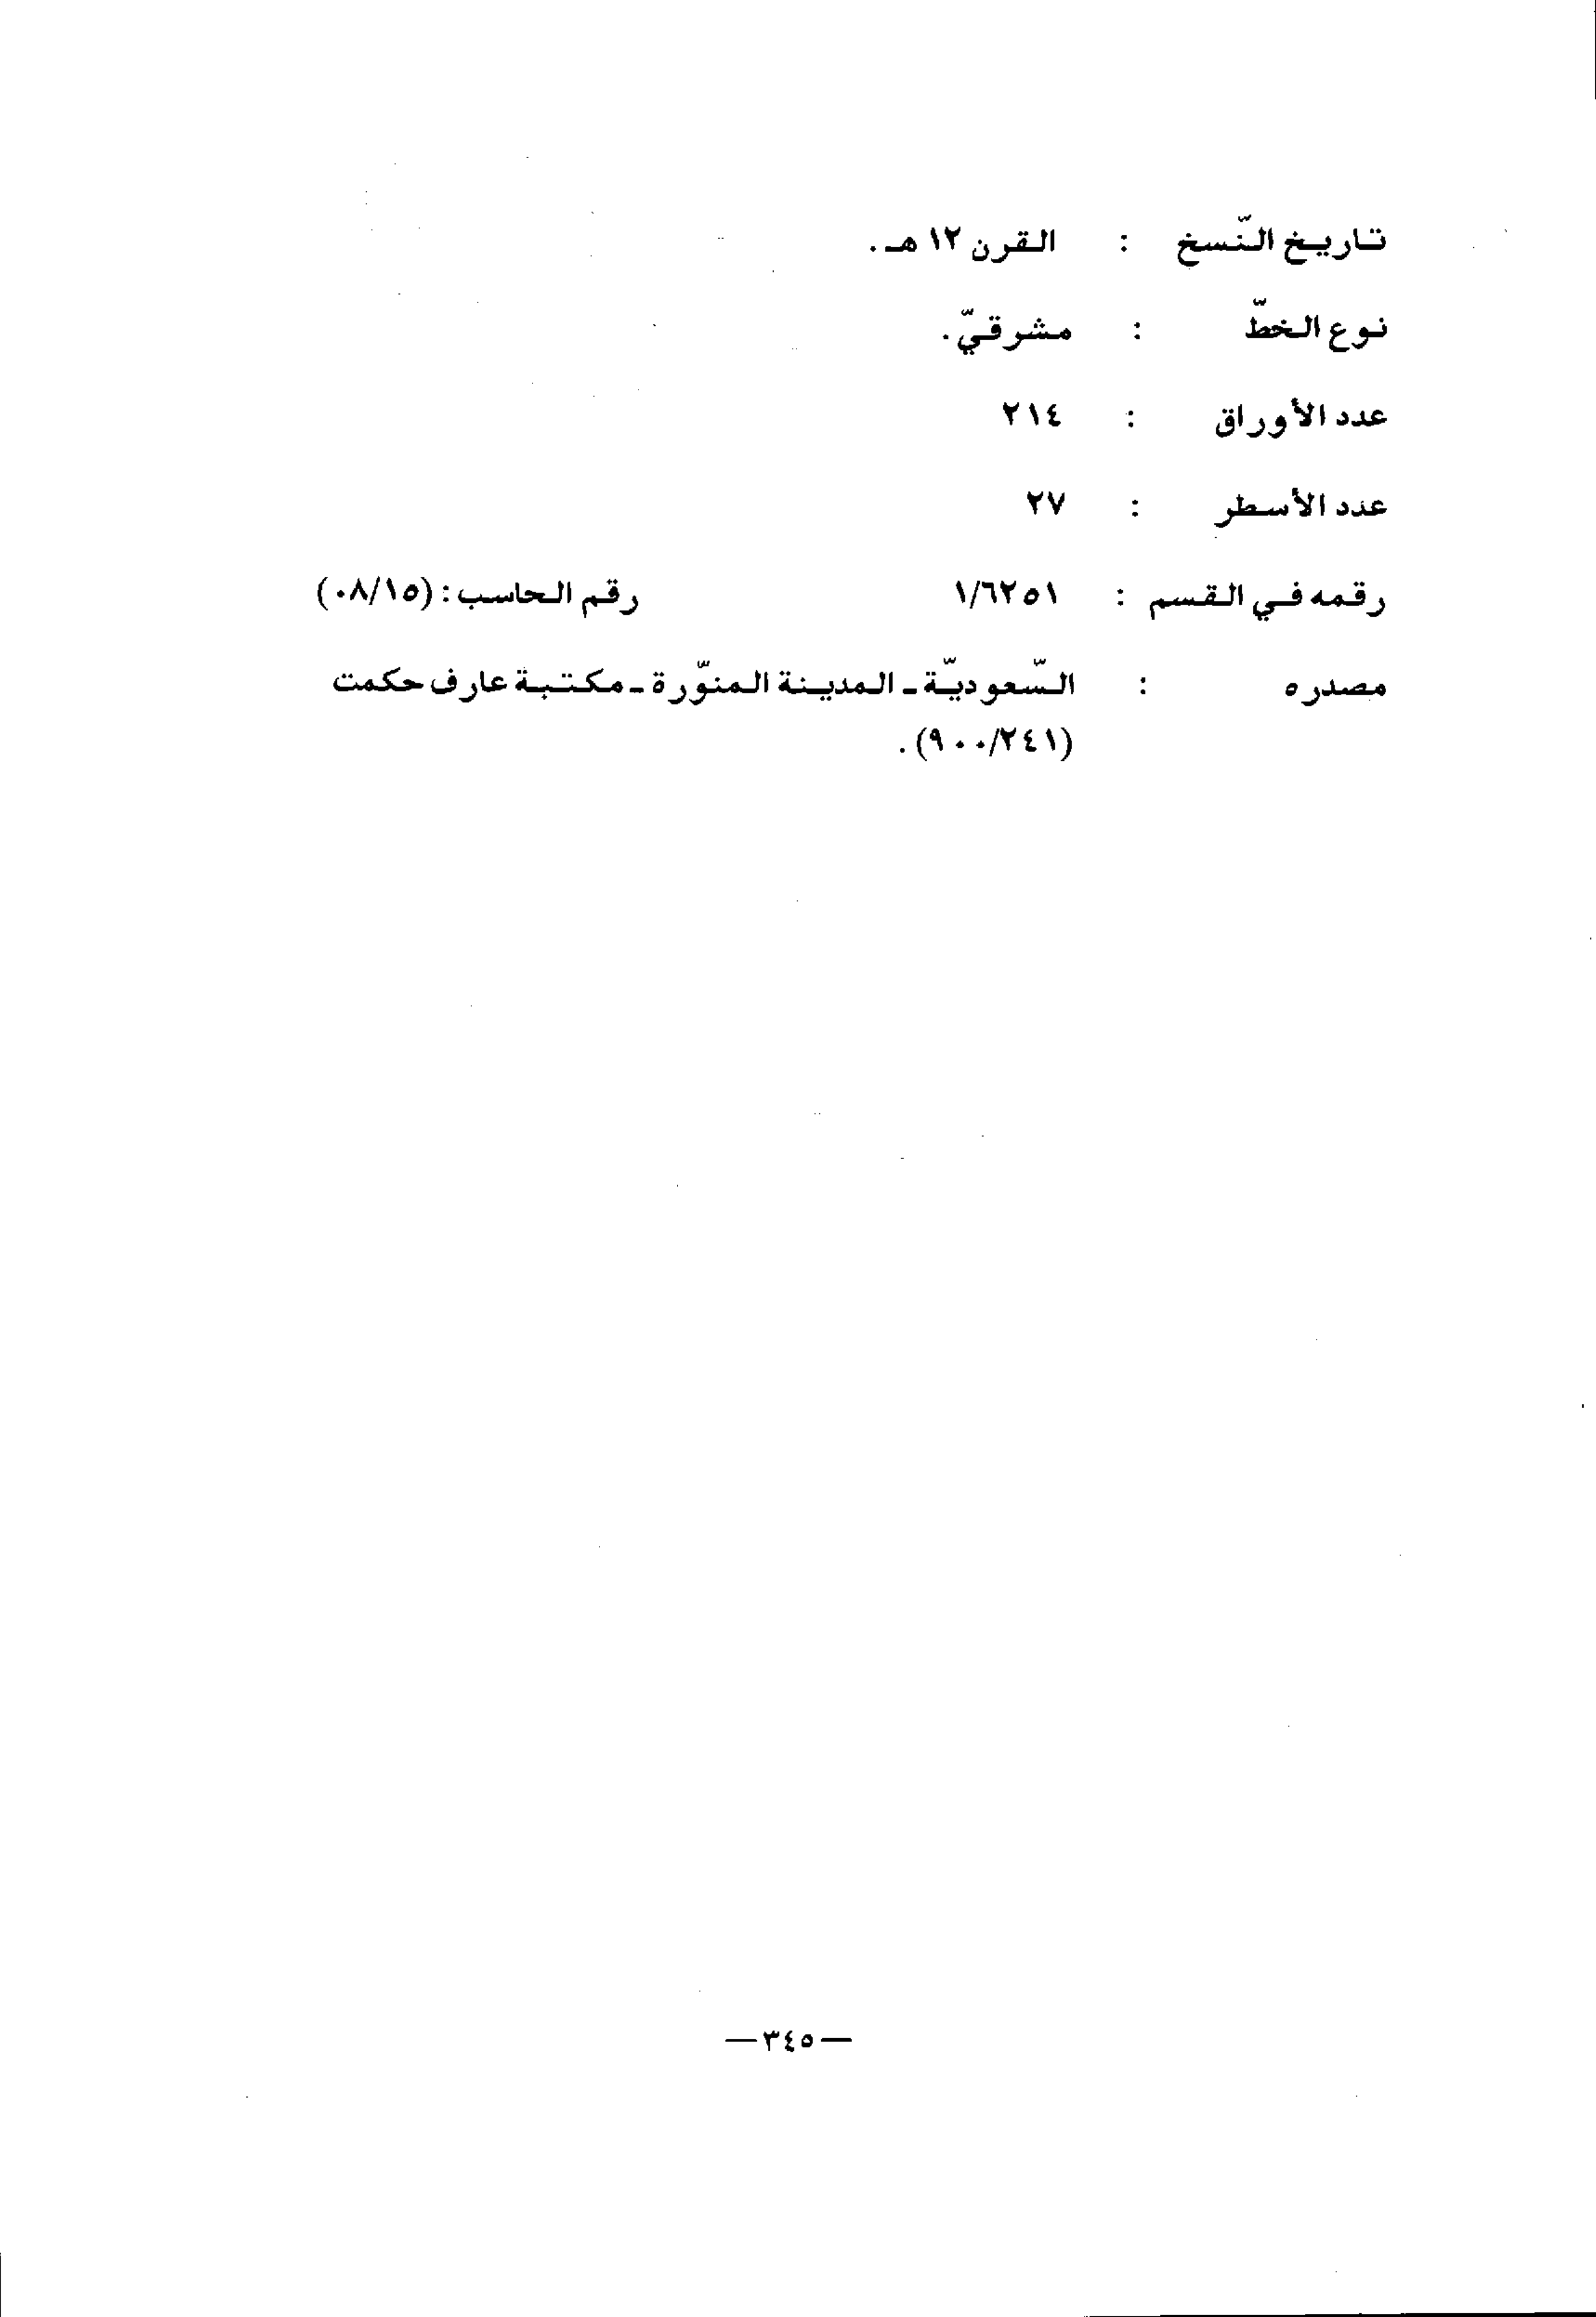 تاريخ النّسخ : القرن ١٢ هـ .
نوع الخطّ : مشرقيّ .
عدد الأوراق : ٢١٤
عدد الأسطر : ٢٧
رقمه في القسم : ١/٦٢٥١ رقم الحاسب : (٠٨/١٥)
مصدره : السّعوديّة ـ المدينة المنوّرة ـ مكتبة عارف حكمت
(٩٠٠/٢٤١) .
— ٣٤٥ —